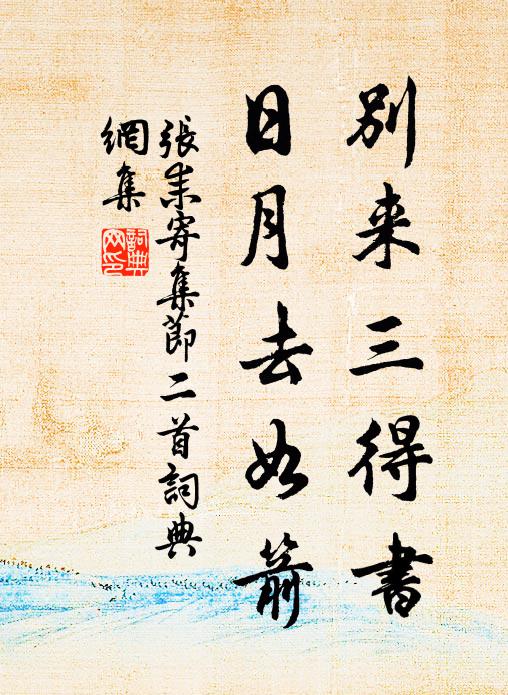 別来三得書
日月去如箭
張耒寄集節二首詞典
網集
詞典
网印